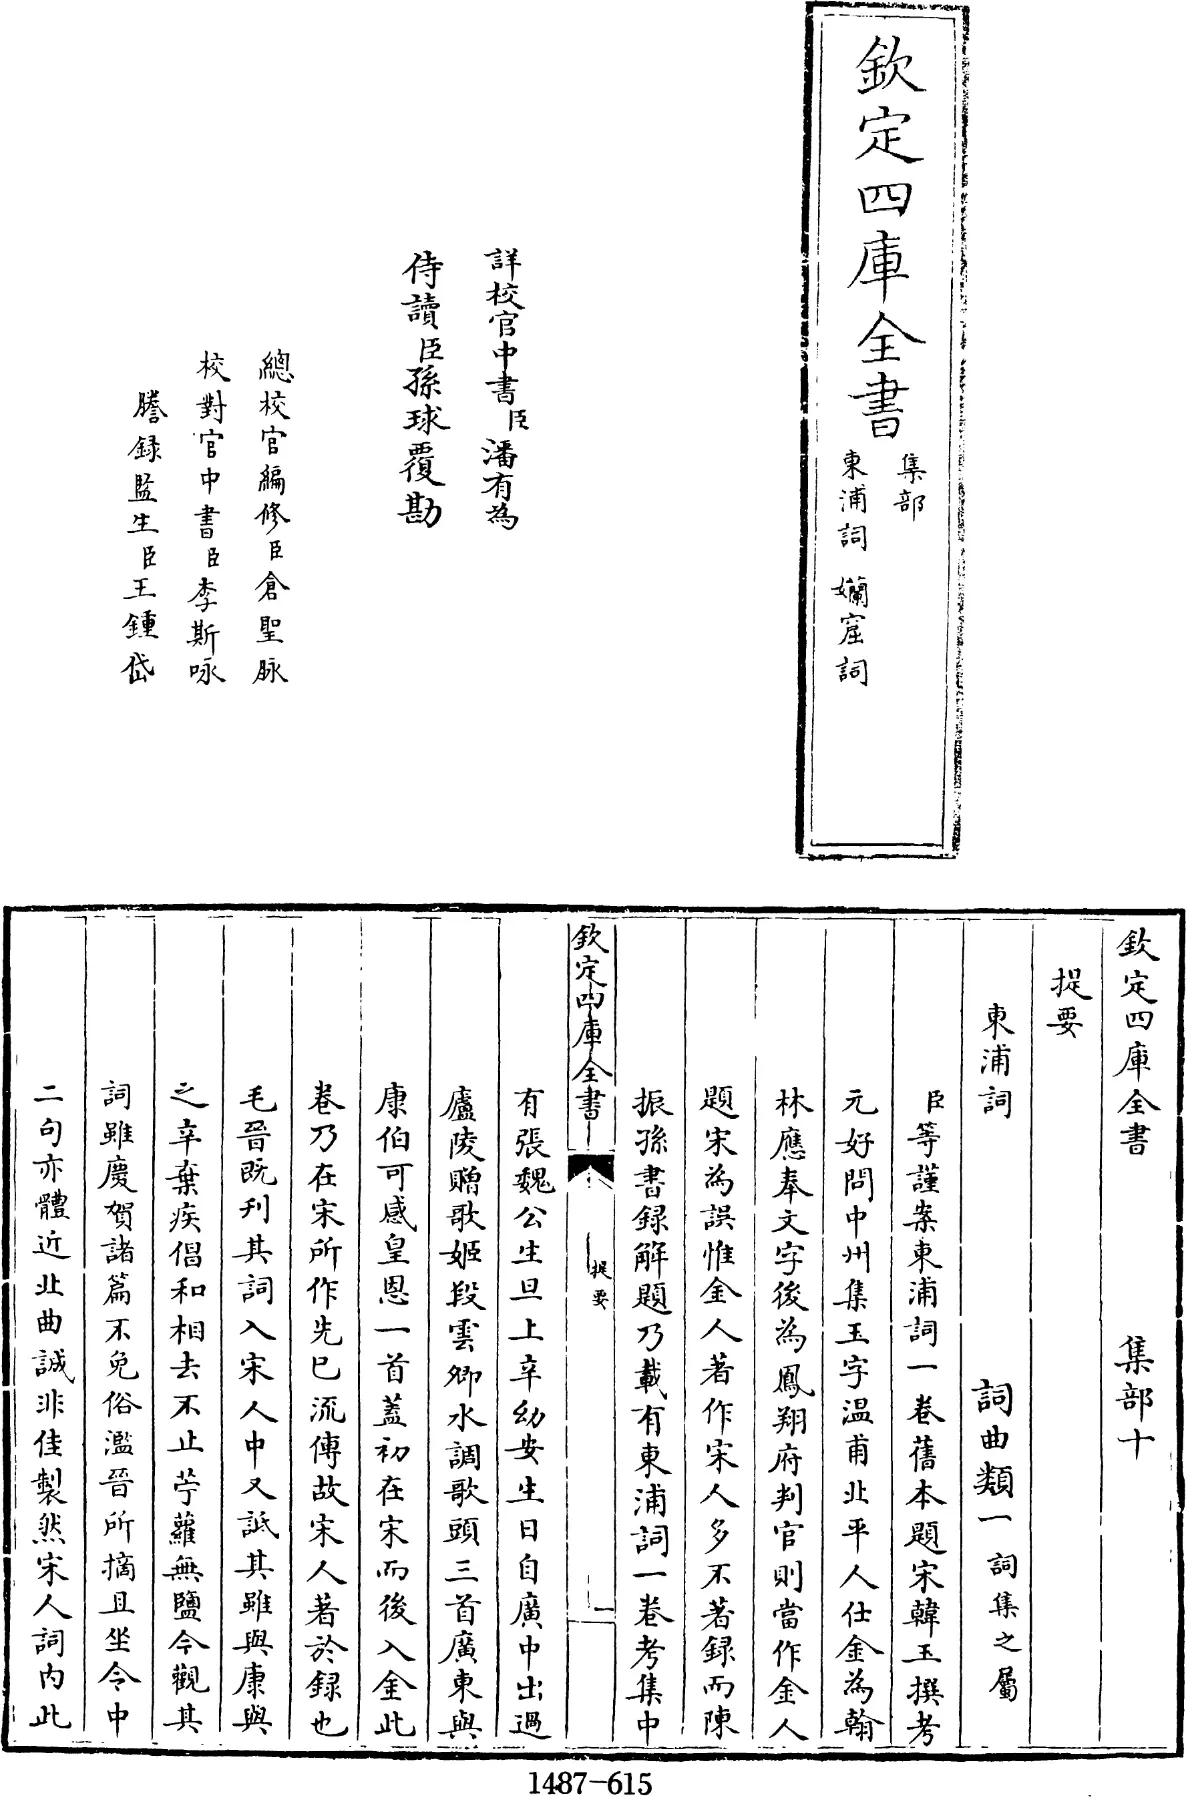 欽定四庫全書
集部
東浦詞 孏窟詞
詳校官中書臣潘有為
侍讀臣孫球覆勘
總校官編修臣倉聖脉
校對官中書臣李斯咏
謄録監生臣王鍾岱
欽定四庫全書 集部十
提要
東浦詞 詞曲類一 詞集之屬
臣等謹案東浦詞一卷舊本題宋韓玉撰考
元好問中州集玉字温甫北平人仕金為翰
林應奉文字後為鳳翔府判官則當作金人
題宋為誤惟金人著作宋人多不著録而陳
振孫書録解題乃載有東浦詞一卷考集中
欽定四庫全書
提要
一
有張魏公生旦上辛幼安生日自廣中出過
廬陵贈歌姬段雲卿水調歌頭三首廣東與
康伯可感皇恩一首蓋初在宋而後入金此
卷乃在宋所作先已流傳故宋人著於録也
毛晉既刋其詞入宋人中又詆其雖與康與
之辛棄疾倡和相去不止苧蘿無鹽今觀其
詞雖慶賀諸篇不免俗濫晉所摘且坐令中
二句亦體近北曲誠非佳製然宋人詞内此
1487-615